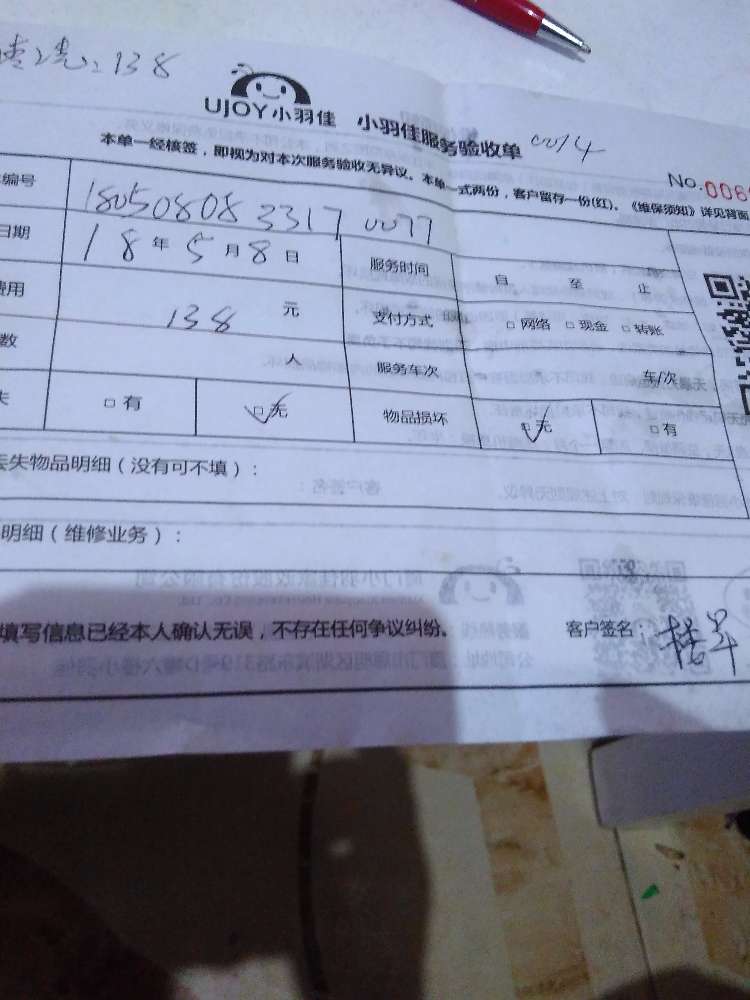 138
UJOY小羽佳 小羽佳服务验收单 0014
本单一经核签，即视为对本次服务验收无异议。本单一式两份，客户留存一份(红)。《维保须知》详见背面
No.006
编号 180508083317 0077
日期 18年5月8日 服务时间 自 至 止
费用 138 元 支付方式 □网络 □现金 □转账
数 人 服务车次 车/次
失 □有 □无 物品损坏 □无 □有
丢失物品明细（没有可不填）：
明细（维修业务）：
填写信息已经本人确认无误，不存在任何争议纠纷。 客户签名：